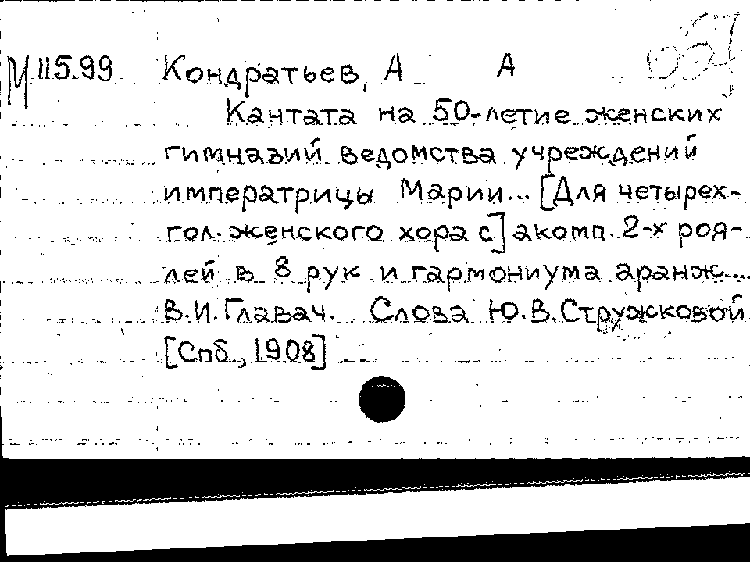 М 115.99 Кондратьев, А А
Кантата на 50-летие женских
гимназий ведомства учреждений
императрицы Марии... [Для четырех-
гол. женского хора с] акомп. 2-х роя-
лей в 8 рук и гармониума аранж...
В.И.Главач. Слова Ю.В.Стружковой
[Спб., 1908]